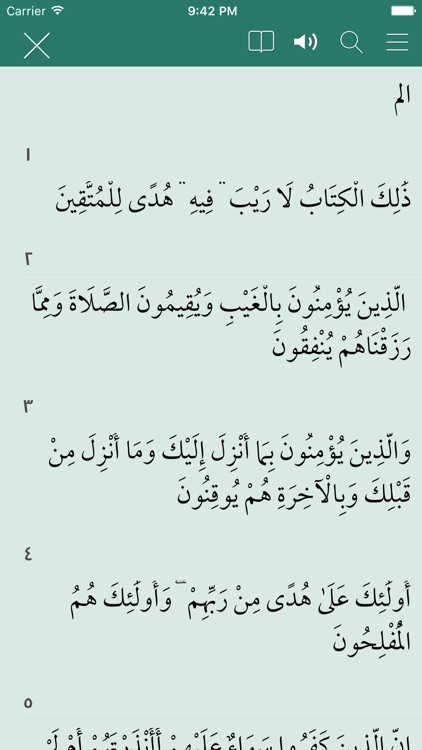 Carrier 9:42 PM
الم
١
ذَٰلِكَ الْكِتَابُ لَا رَيْبَ ۛ فِيهِ ۛ هُدًى لِلْمُتَّقِينَ
٢
الَّذِينَ يُؤْمِنُونَ بِالْغَيْبِ وَيُقِيمُونَ الصَّلَاةَ وَمِمَّا
رَزَقْنَاهُمْ يُنْفِقُونَ
٣
وَالَّذِينَ يُؤْمِنُونَ بِمَا أُنْزِلَ إِلَيْكَ وَمَا أُنْزِلَ مِنْ
قَبْلِكَ وَبِالْآخِرَةِ هُمْ يُوقِنُونَ
٤
أُولَٰئِكَ عَلَىٰ هُدًى مِنْ رَبِّهِمْ ۖ وَأُولَٰئِكَ هُمُ
الْمُفْلِحُونَ
٥
إِنَّ الَّذِينَ كَفَرُوا سَوَاءٌ عَلَيْهِمْ أَأَنْذَرْتَهُمْ أَمْ لَمْ